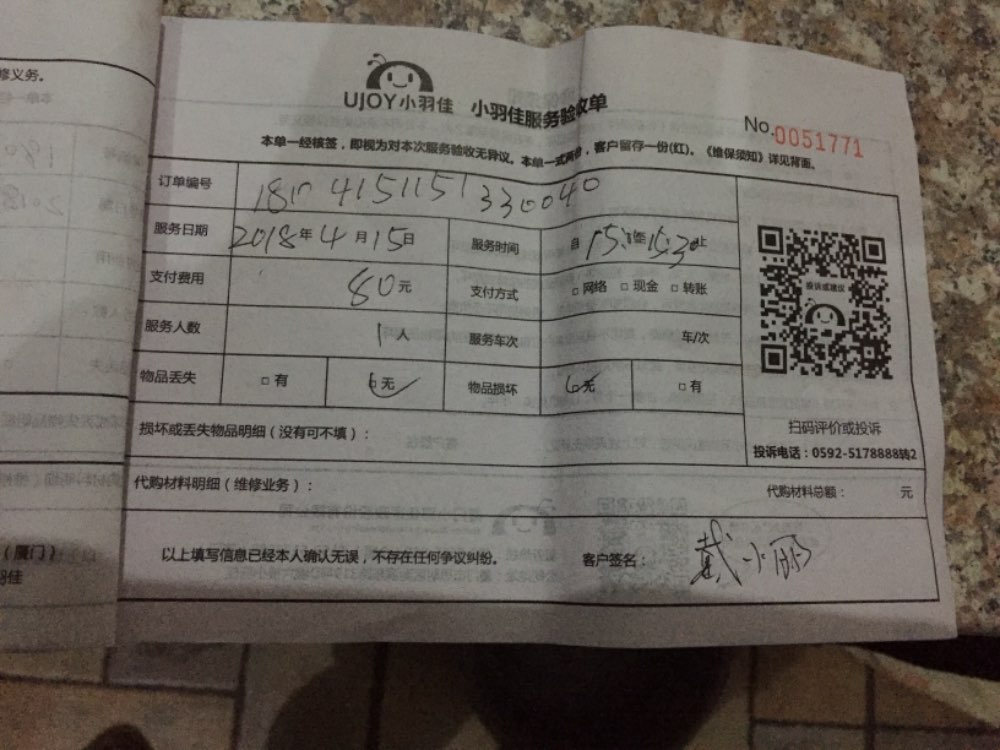 修义务。
UJOY小羽佳 小羽佳服务验收单
No.0051771
本单一经核签，即视为对本次服务验收无异议。本单一式两份，客户留存一份(红)。《维保须知》详见背面。
订单编号
服务日期 2018年4月15日 服务时间 自 至15:30止
支付费用 80元 支付方式 □ 网络 □ 现金 □ 转账
投诉或建议
服务人数 1人 服务车次 车/次
物品丢失 □ 有 无 物品损坏 无 □ 有
扫码评价或投诉
损坏或丢失物品明细（没有可不填）：
投诉电话：0592-5178888转2
代购材料明细（维修业务）： 代购材料总额： 元
（厦门）
羽佳
以上填写信息已经本人确认无误，不存在任何争议纠纷。 客户签名： 戴小丽